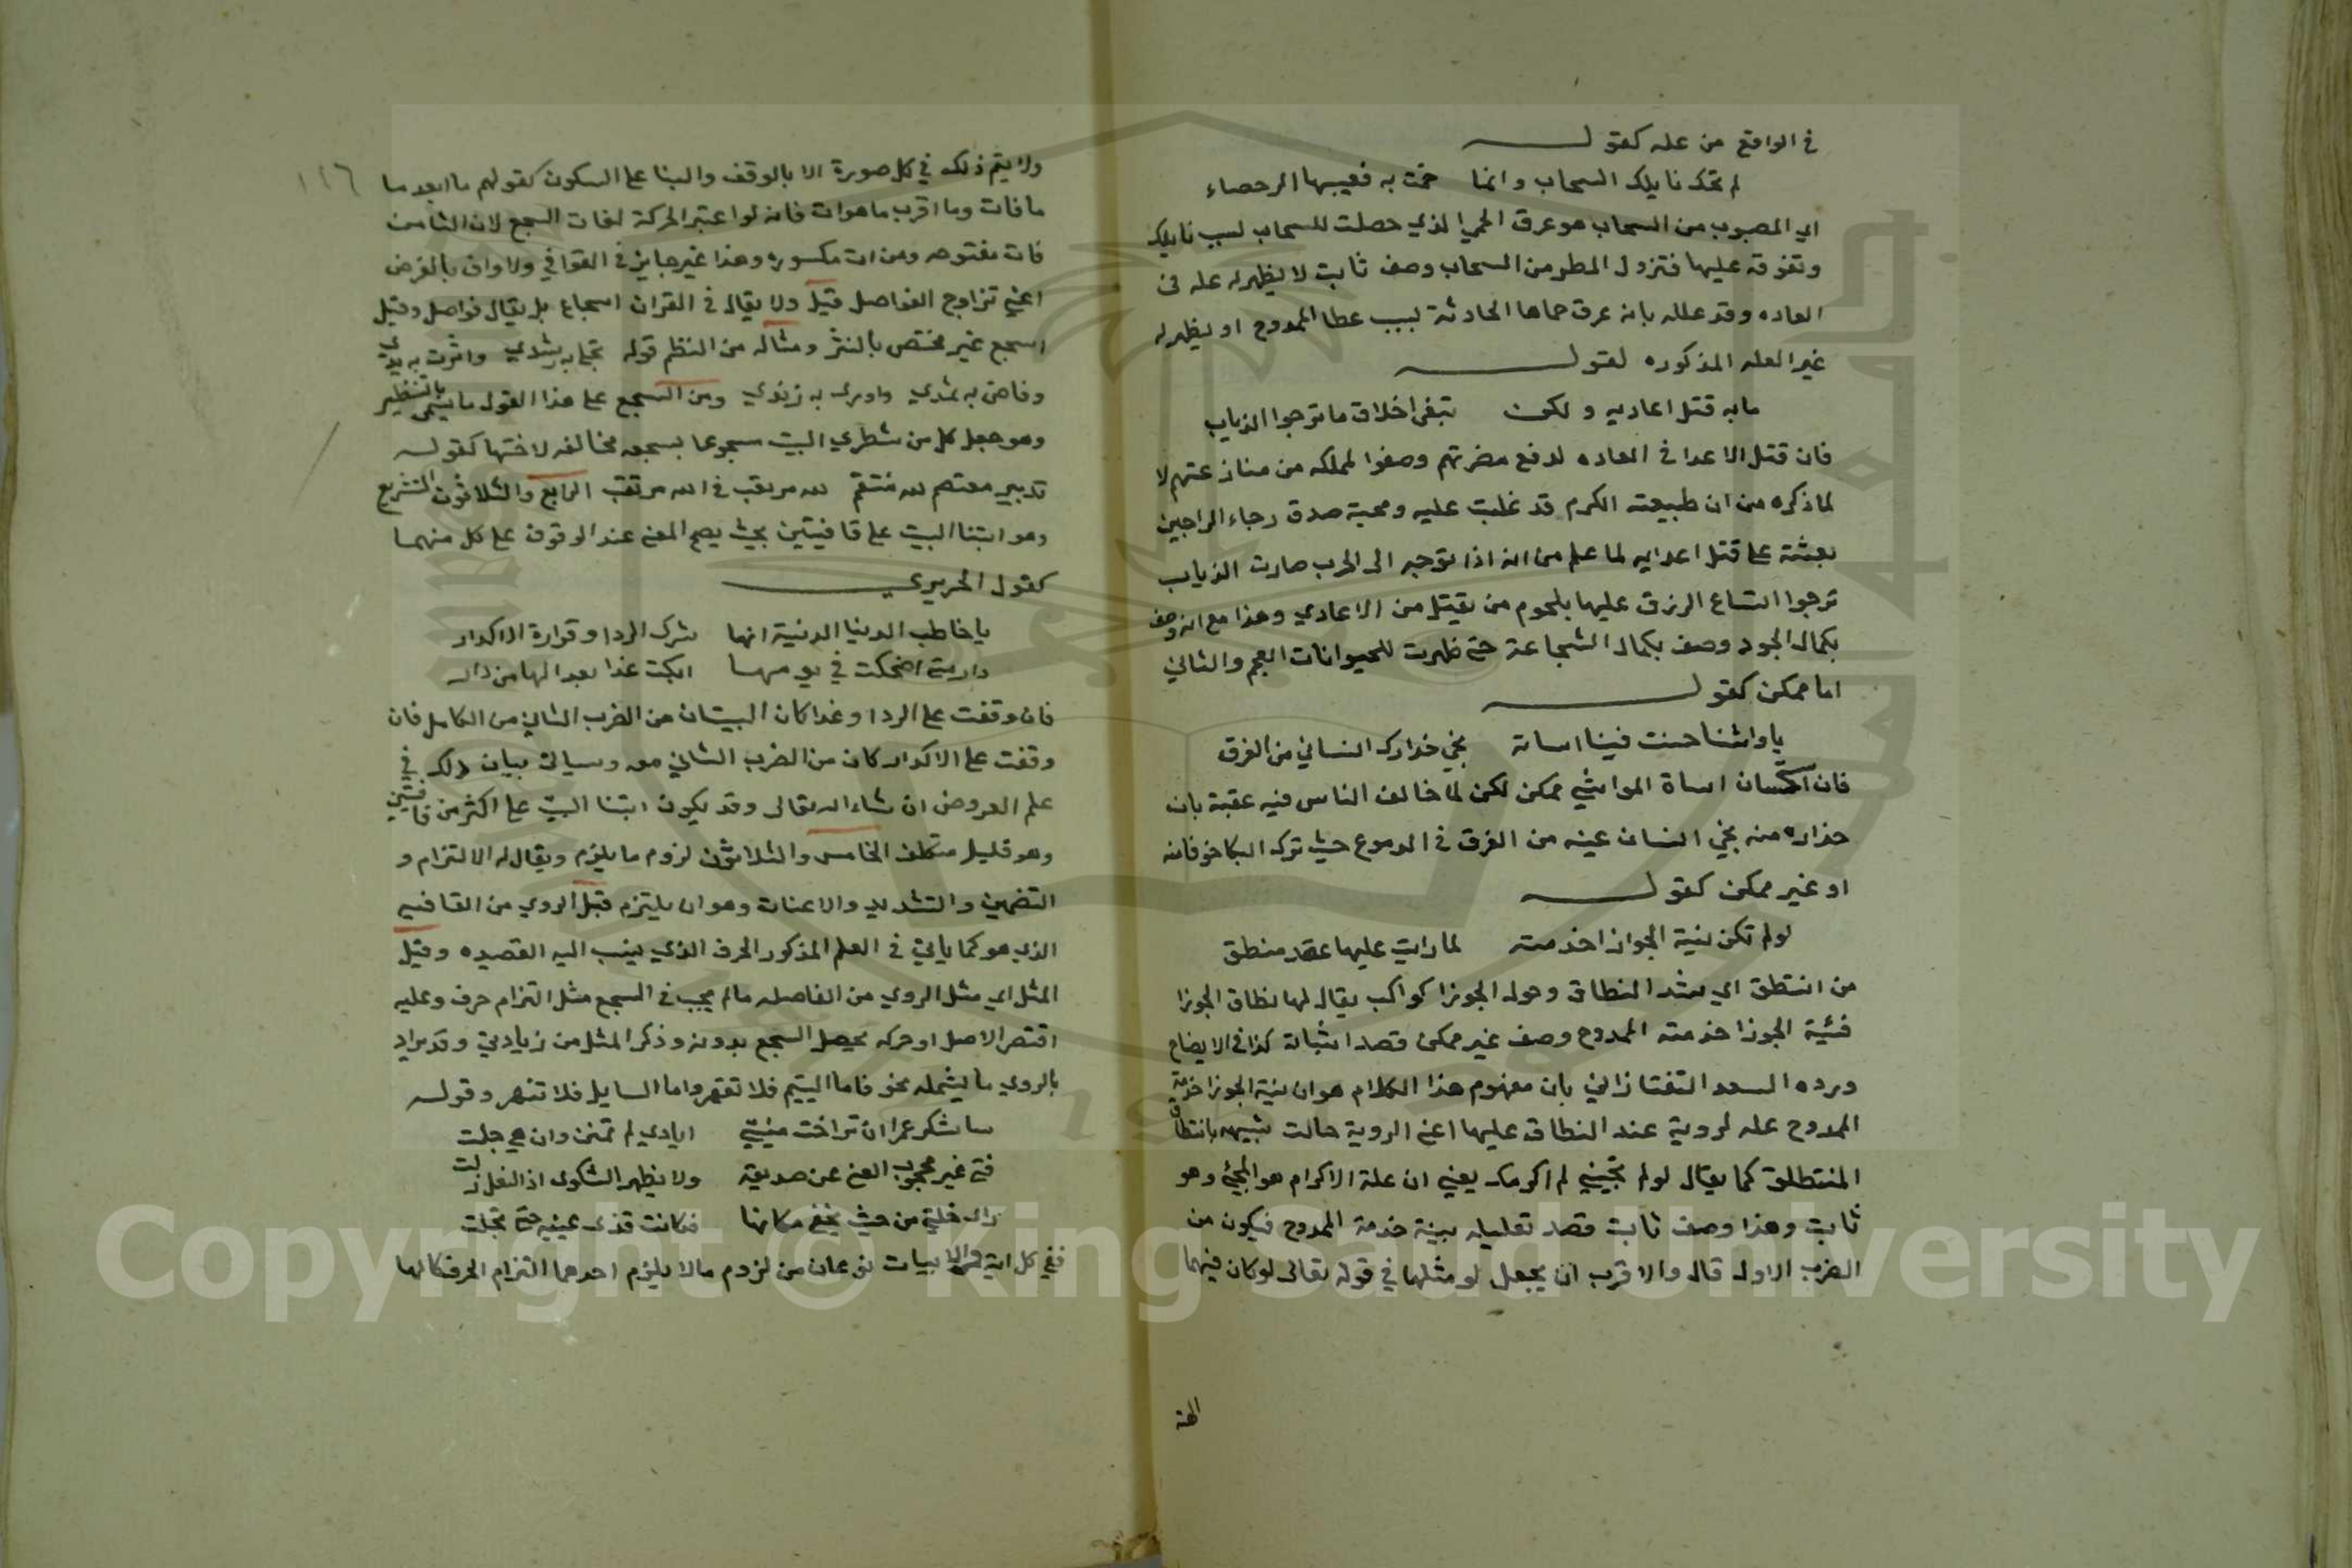 في الواقع من عله كقوله
لم تحك نايلك السحاب وانما حمت به فصبيبها الرحضاء
اي المصبوب من السحاب هو عرق الحمى الذي حصلت للسحاب بسبب نايلك
وتفوقه عليها فنزول المطر من السحاب وصف ثابت لا يظهر له عله في
العاده وقد علله بانه عرق حماها الحادثة بسبب عطا الممدوح او يظهر له
غير العله المذكوره كقوله
ما به قتل اعاديه ولكن يتقي اخلاف ما ترجوا الذياب
فان قتل الاعدا في العاده لدفع مضرتهم وصفوا لمملكه من منازعتهم لا
لما ذكره من ان طبيعته الكرم قد غلبت عليه ومحبة صدق رجاء الراجين
بعثته على قتل اعدايه لما علم من انه اذا توجه الى الحرب صارت الذياب
ترجوا اتساع الرزق عليها بلحوم من يقتل من الاعادي وهذا مع انه وصف
بكمال الجود وصف بكمال الشجاعة حتى ظهرت للحيوانات العجم والثاني
اما ممكن كقوله
يا واشيا حسنت فينا اساته نجي حذارك انساني من الغرق
فان استحسان اساة الواشي ممكن لكن لما خالف الناس فيه عقبه بان
حذاره منه نجي انسان عينه من الغرق في الدموع حيث ترك البكا خوفا منه
او غير ممكن كقوله
لو لم تكن نية الجوزا خدمته لما رايت عليها عقد منطق
من انتطق اي شد النطاق وحول الجوزا كواكب يقال لها نطاق الجوزا
فنية الجوزا خدمته الممدوح وصف غير ممكن قصد اثباته كذا في الايضاح
ورده السعد التفتازاني بان مفهوم هذا الكلام هو ان نية الجوزا خدمة
الممدوح عله لروية عقد النطاق عليها اعني الروية حالت شبيهه بانتطاق
المنتطلق كما يقال لو لم تجيني لم اكرمك يعني ان علة الاكرام هو المجئ وهو
ثابت وهذا وصف ثابت قصد تعليله بنية خدمة الممدوح فيكون من
الضرب الاول قال والاقرب ان يجعل لو مثلها في قوله تعالى لو كان فيهما
الهة
١١٦
ولا يتم ذلك في كل صورة الا بالوقف والبنا على السكون كقولهم ما ابعد ما
ما فات وما اقرب ما هو ات فانه لو اعتبر الحركة لفات السجع لان التا من
فات مفتوحه ومن ات مكسوره وهذا غير جايز في القوافي ولا واف بالغرض
اعني تزاوج الفواصل قيل ولا يقال في القران اسجاع بل يقال فواصل وقيل
السجع غير مختص بالنثر ومثاله من النظم قوله تجلى به رشدي واثرت به يدي
وفاض به ثمدي واورى به زندي ومن السجع على هذا القول ما يسمى بالتشطير
وهو جعل كل من شطري البيت سجوعا بسجعه مخالفه لاختها كقوله
تدبير معتصم لله منتقم لله مرتغب في الله مرتقب الرابع والثلاثون التشريع
وهو ابتنا البيت على قافيتين بحيث يصح المعنى عند الوقوف على كل منهما
كقول الحريري
يا خاطب الدنيا الدنية انها شرك الردا وقرارة الاكدار
دار متى اضحكت في يومها ابكت غدا بعدا لها من دار
فان وقفت على الردا وغدا كان البيتان من الضرب الثاني من الكامل فان
وقفت على الاكدار كان من الضرب الثاني منه وسياتي بيان ذلك في
علم العروض ان شاء الله تعالى وقد يكون ابتنا البيت على اكثر من قافيتين
وهو قليل متكلف الخامس والثلاثون لزوم ما يلزم ويقال له الالتزام و
التضمين والتشديد والاعنات وهو ان يلتزم قبل الروي من القافيه
الذي هو كما ياتي في العلم المذكور الحرف الذي ينسب اليه القصيده وقيل
المثل اي مثل الروي من الفاصله ما لم يجب في السجع مثل التزام حرف وعليه
اقتصر الاصل او حركه يحصل السجع بدونه وذكر المثل من زيادتي وقد يراد
بالروي ما يشمله نحو فاما اليتيم فلا تقهر واما السايل فلا تنهر وقوله
ساشكر عمرا ان تراخت منيتي ايادي لم تمنن وان هي جلت
فتى غير محجوب الغنى عن صديقه ولا يظهر الشكوى اذا النعل زلت
راى خلتي من حيث يخفى مكانها فكانت قذى عينيه حتى تجلت
ففي كل اية والابيات نوعان من لزوم ما لا يلزم احدهما التزام الحرف كالها